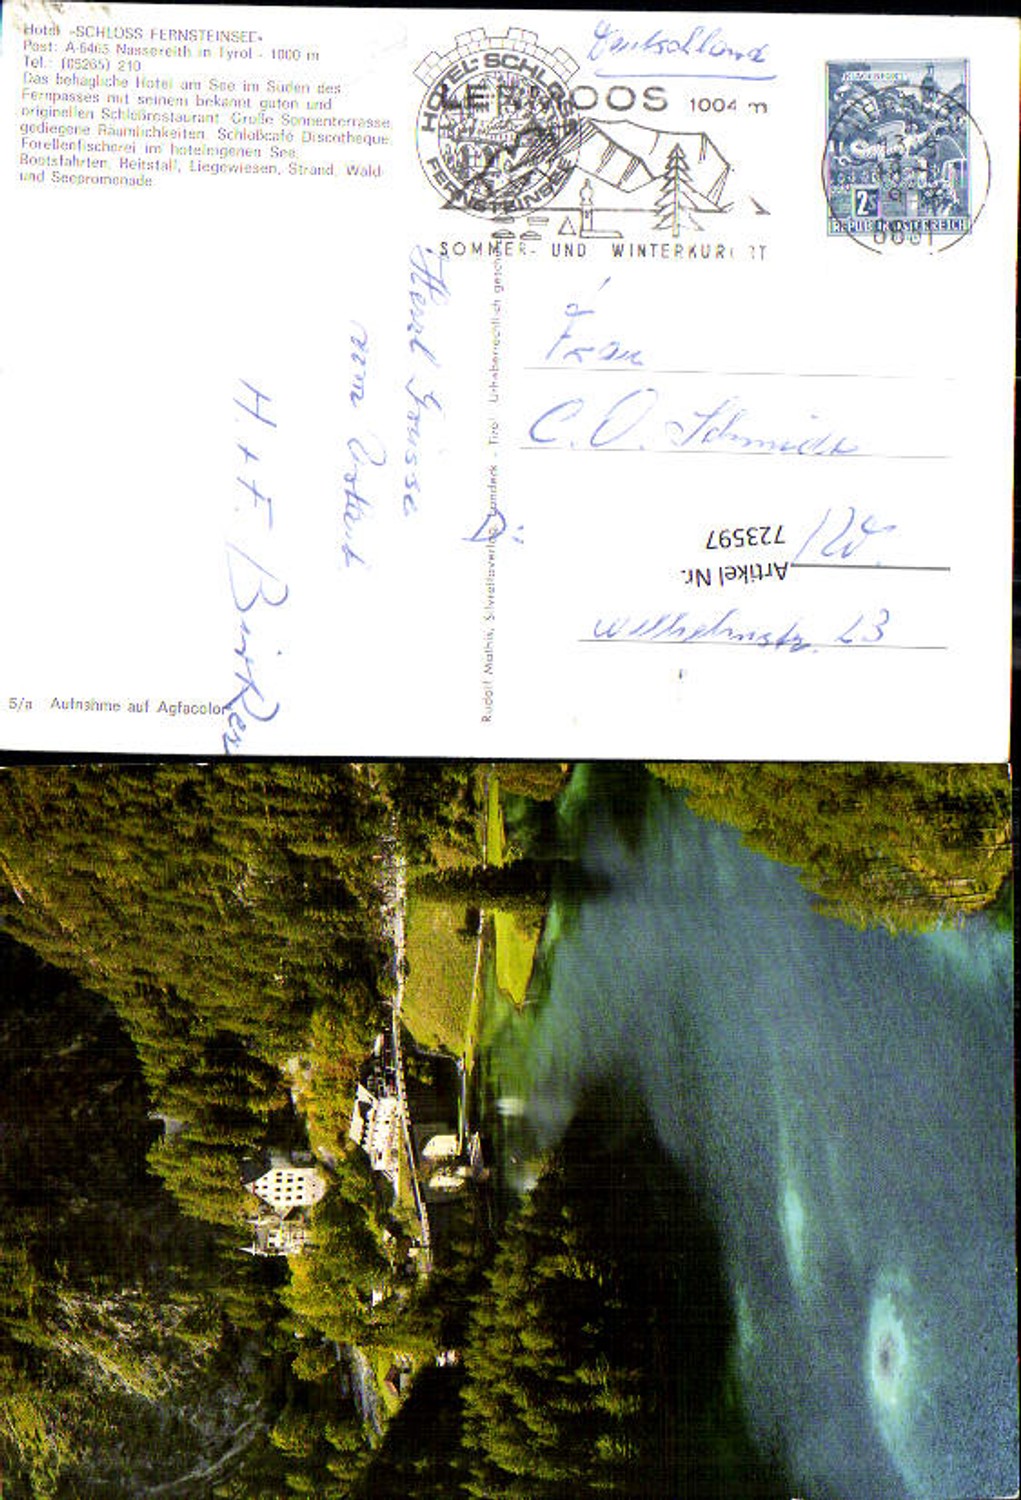 Hotel »SCHLOSS FERNSTEINSEE«
Post: A-6465 Nassereith in Tyrol - 1000 m
Tel.: (05265) 210
Das behagliche Hotel am See im Süden des
Fernpasses mit seinem bekannt guten und
originellen Schloßrestaurant. Große Sonnenterrasse,
gediegene Räumlichkeiten. Schloßcafé Discotheque.
Forellenfischerei im hoteleigenen See.
Bootsfahrten, Reitstall, Liegewiesen, Strand, Wald-
und Seepromenade.
Deutschland
HOTEL-SCHLOSS
FERNSTEINSEE
LERMOOS 1004 m
SOMMER- UND WINTERKURORT
2S
REPUBLIK ÖSTERREICH
Herzl. Grüsse
vom Urlaub
H. + F.
Frau
C. O. Schmidt
Artikel Nr.
723597
Wilhelmstr. 23
Rudolf Mathis, Silvrettaverlag, Landeck - Tirol Urheberrechtlich geschützt
5/a Aufnahme auf Agfacolor